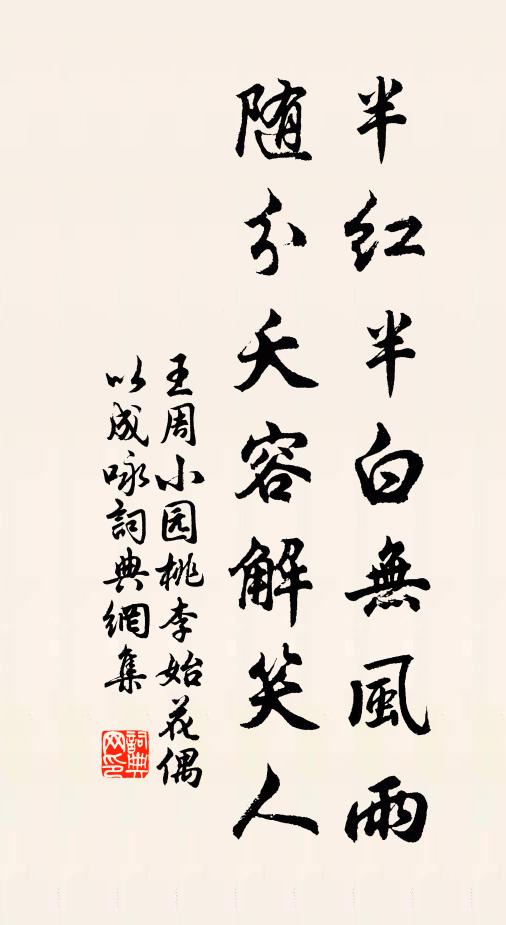 半红半白無風雨
随分夭容解笑人
王周小园桃李始花偶
以成咏詞典網集
詞典网印